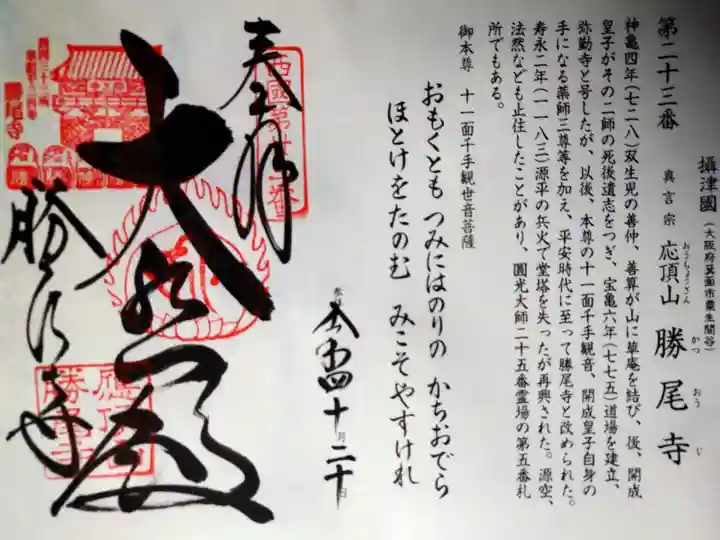 第二十三番
攝津國(大阪府箕面市粟生間谷)
真言宗 応頂山 勝尾寺
おうちょうざん かつおうじ
神亀四年(七二八)双生児の善仲、善算が山に草庵を結び、後、開成
皇子がその二師の死後遺志をつぎ、宝亀六年(七七五)道場を建立、
弥勒寺と号したが、以後、本尊の十一面千手観音、開成皇子自身の
手になる薬師三尊等を加え、平安時代に至って勝尾寺と改められた。
寿永二年(一一八三)源平の兵火で堂塔を失ったが再興された。源空、
法然なども止住したことがあり、圓光大師二十五番霊場の第五番札
所でもある。
御本尊 十一面千手観世音菩薩
おもくとも つみにはのりの かちおでら
ほとけをたのむ みこそやすけれ
四十月二十日
奉拝
西國第廿三番
大悲殿
勝尾寺
應頂山
勝尾寺